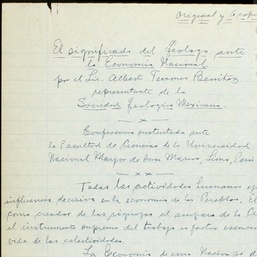 Original y 6 copias
El significado del Geologo ante
la Economia Nacional
por el Lic. Alberto Terrones Benitez
representante de la
Sociedad Geologica Mexicana.
Conferencia sustentada ante
la Facultad de Ciencias de la Universidad
Nacional Mayor de San Marcos, Lima, Perú
Todas las actividades humanas
influencia decisiva en la economia de los Pueblos. El
como creador de las riquezas al amparo de la
el instrumento supremo del trabajo es factor
vida de las colectividades.
La Economia de una Nacion